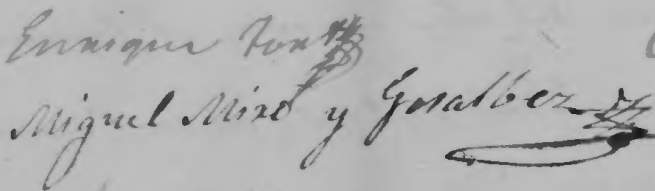 Enrique
Miguel Miro y Gosalbez